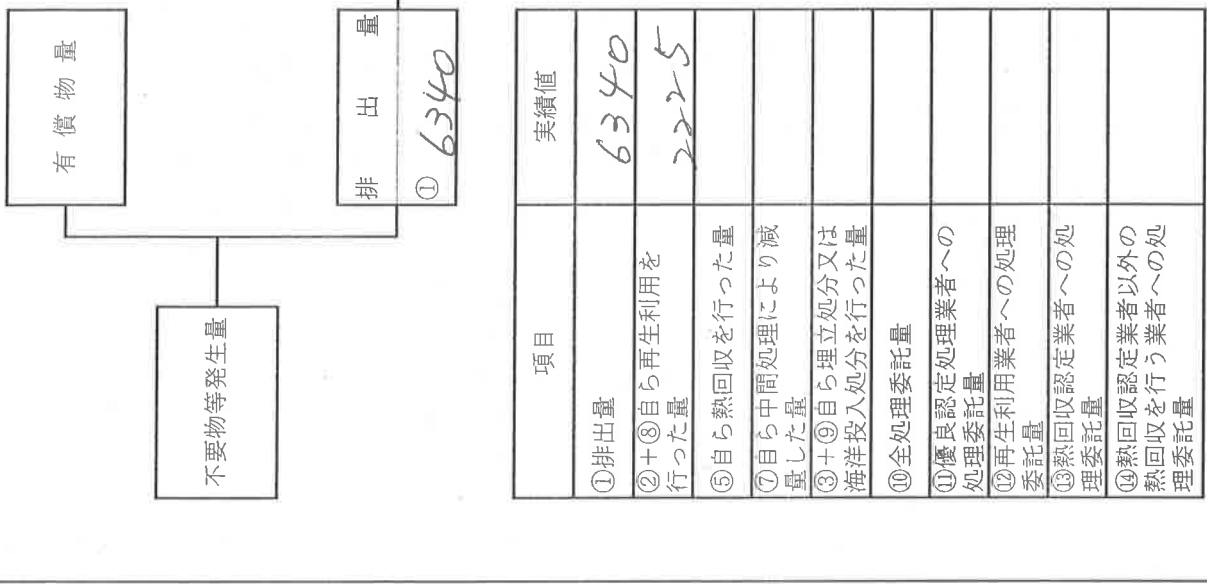 有償物量
不要物等発生量
排出量
① 6340
項目
実績値
①排出量
6340
②+⑧自ら再生利用を
行った量
2225
⑤自ら熱回収を行った量
⑦自ら中間処理により減
量した量
③+⑨自ら埋立処分又は
海洋投入処分を行った量
⑩全処理委託量
⑪優良認定処理業者への
処理委託量
⑫再生利用業者への処理
委託量
⑬熱回収認定業者への処
理委託量
⑭熱回収認定業者以外の
熱回収を行う業者への処
理委託量